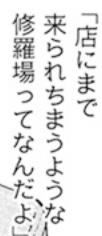 「店にまで
来られちまうような
修羅場ってなんだよ」